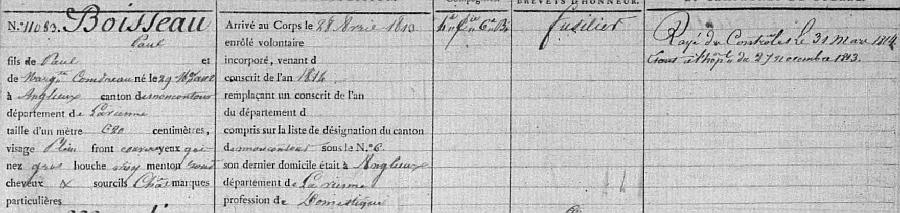 BREVETS D'HONNEUR.
N.º 11083. Boisseau
Paul
fils de Paul et
de Marg.te né le 29
à Anglieux canton de moncontour
département de La vienne
taille d'un mètre 680 centimètres,
visage Plein front yeux gris
nez gros bouche moy menton rond
cheveux & sourcils Châs marques
particulières
Arrivé au Corps le 28 1813
enrôlé volontaire
incorporé, venant d
conscrit de l'an 1814
remplaçant un conscrit de l'an
du département d
compris sur la liste de désignation du canton
de moncontour sous le N.º 6.
son dernier domicile était à Anglieux
département de La vienne
profession de Domestique
4e 6e Bon
fusilier
Rayé du Contrôle le 31 Mars 1814
hôpal du 27 novembre 1813.